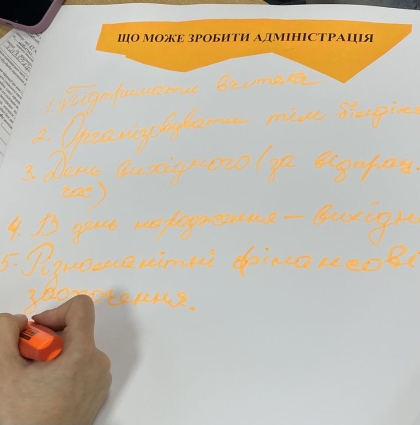 ЩО МОЖЕ ЗРОБИТИ АДМІНІСТРАЦІЯ
1. Підтримати вчителя
2. Організовувати тім білдінг
3. День вихідного (за відпрац.
час)
4. В день народження – вихідн
5. Різноманітні фінансові
заохочення.